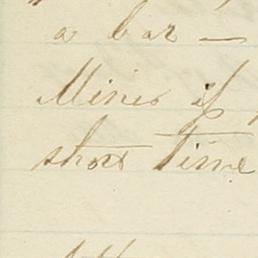 a bar —
Mines if
short time